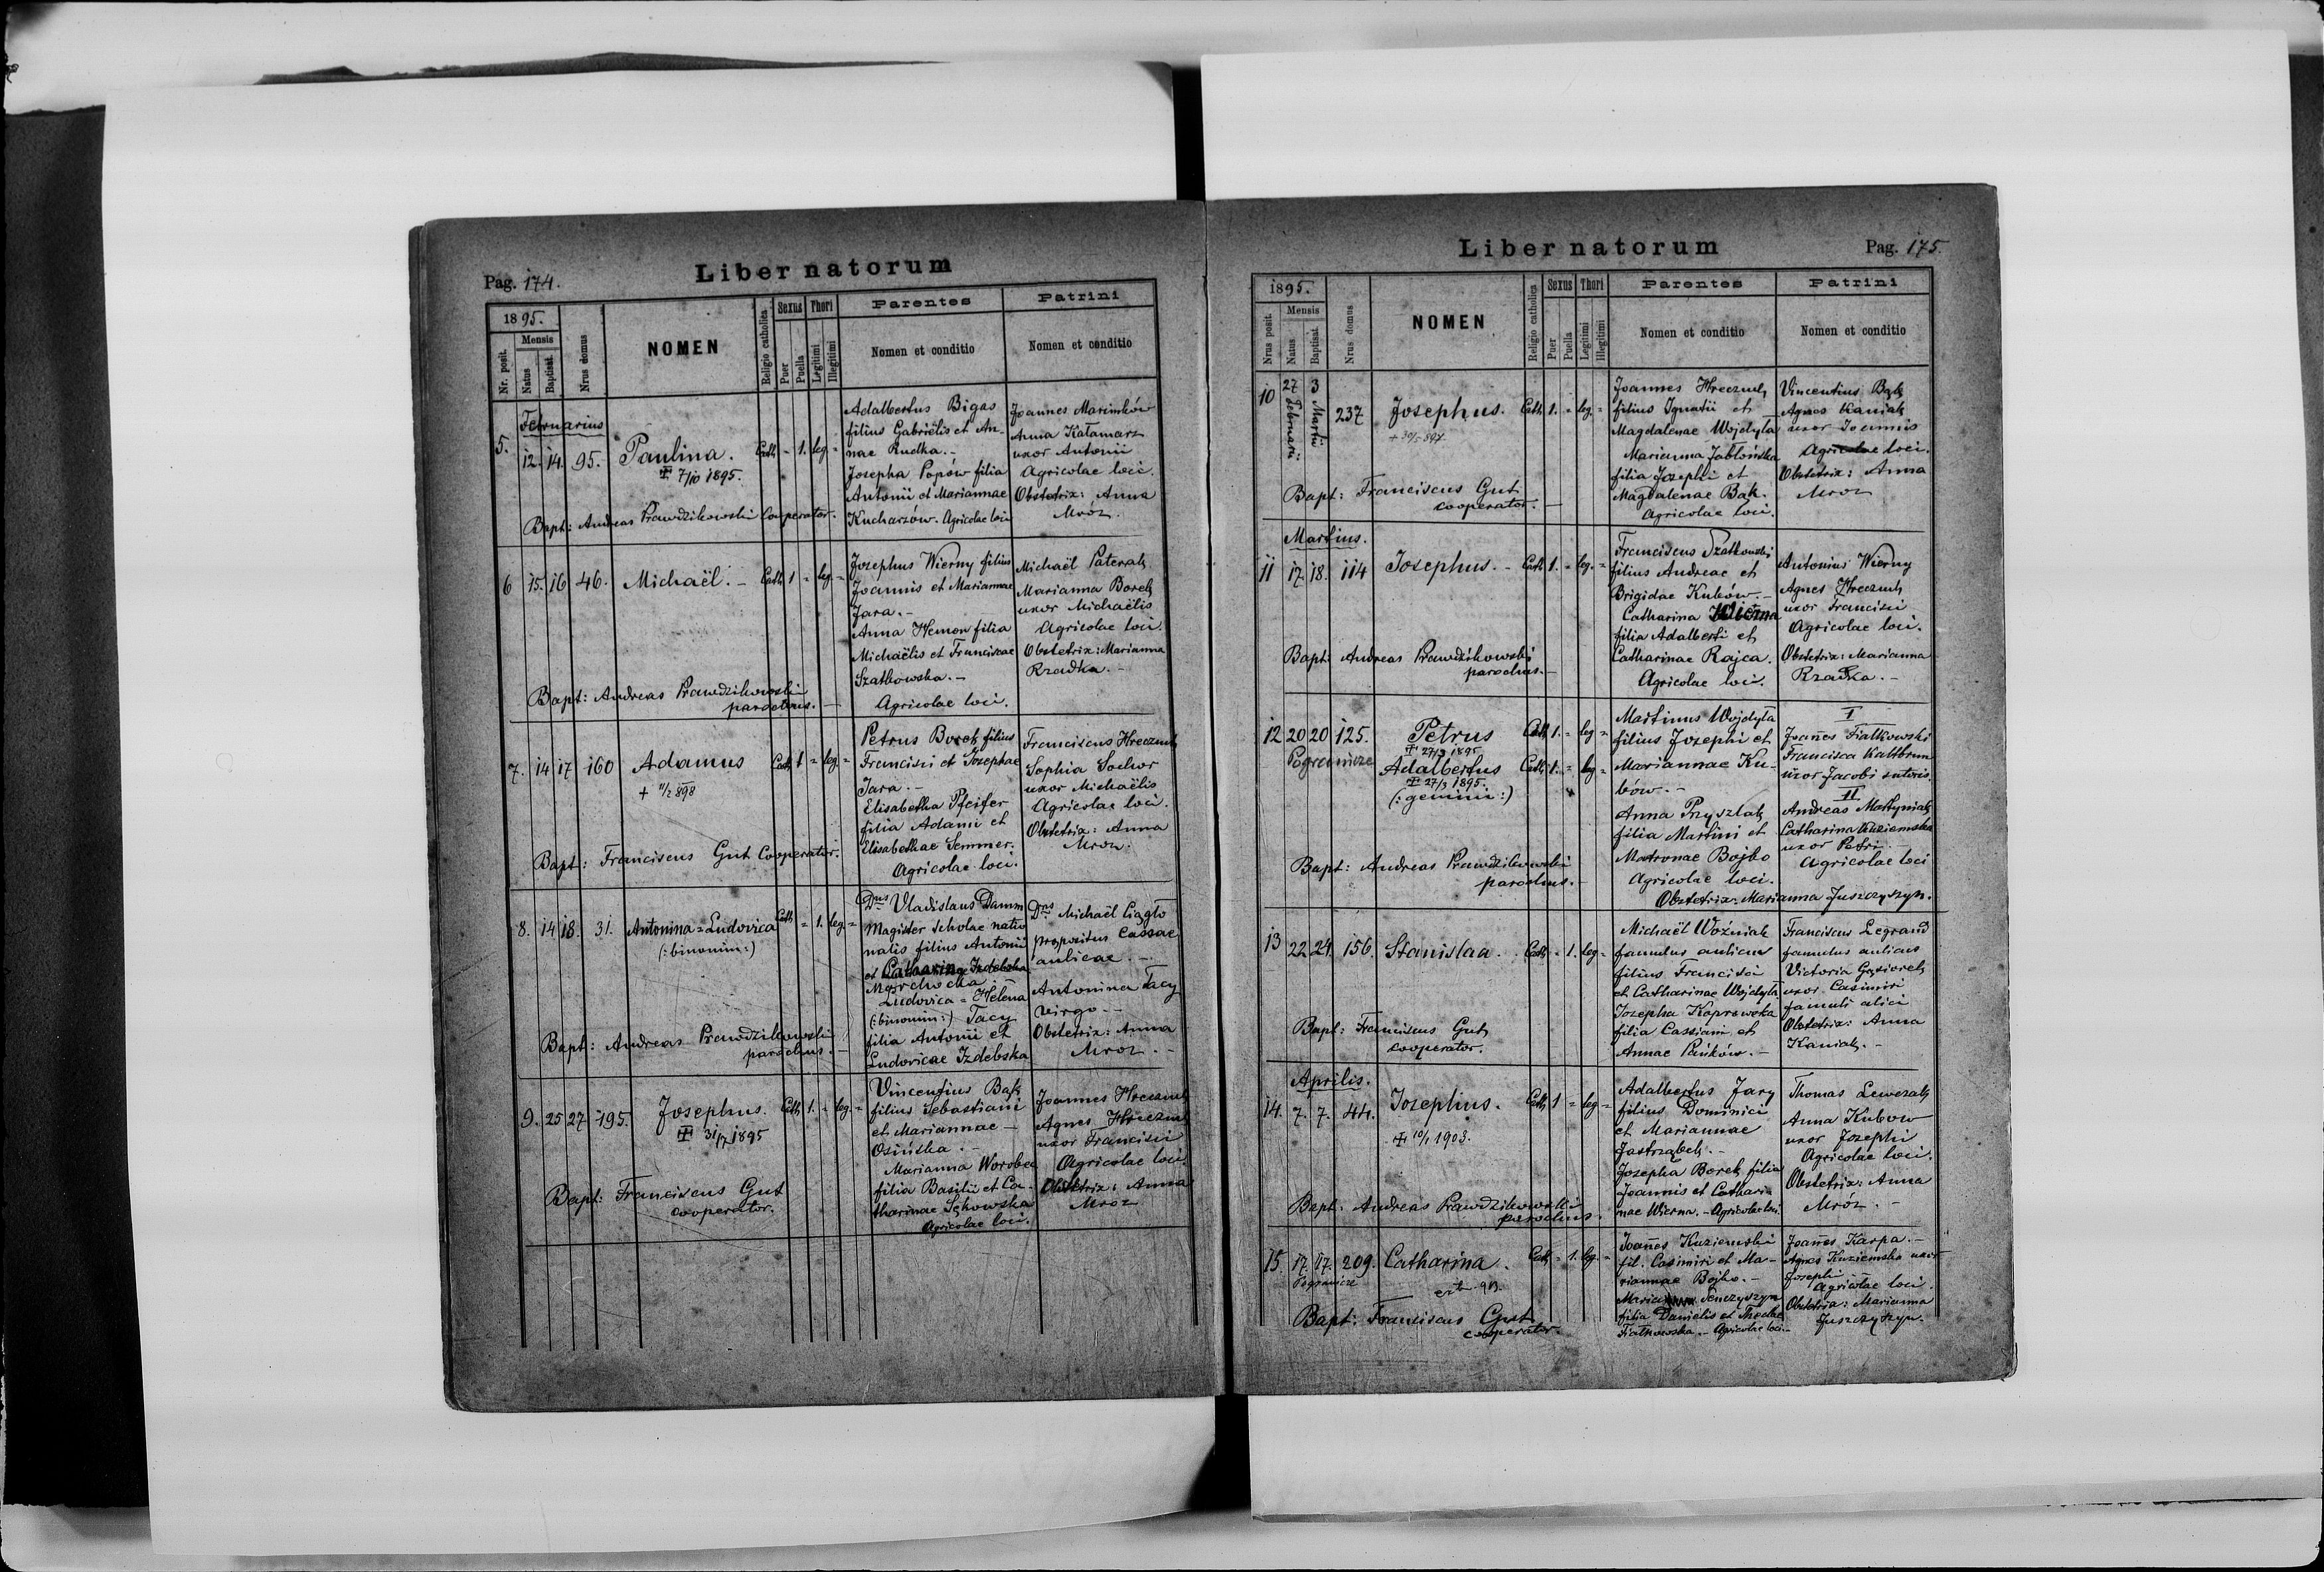 Pag. 174.
Liber natorum
1895.
Nr. posit.
Mensis
Natus
Baptisat.
Nrus domus
NOMEN
Religio catholica
Sexus
Puer
Puella
Thori
Legitimi
Illegitimi
Parentes
Nomen et conditio
Patrini
Nomen et conditio
Februarius
5. 12. 14. 95. Paulina. Cath - 1. leg. =
+ 7/10 1895.
Adalbertus Bigas
filius Gabriëlis et An-
nae Rudka. -
Josepha Popów filia
Antonii et Mariannae
Kucharzów. Agricolae loci
Joannes Marinków
Anna Katamarz
uxor Antonii
Agricolae loci.
Obstetrix: Anna
Mroz.
Bapt: Andreas Prawdzikowski Cooperator.
6 15. 16 46. Michaël. - Cath 1 = leg. =
Josephus Wierny filius
Joannis et Mariannae
Jara. -
Anna Hemon filia
Michaëlis et Franciscae
Szatkowska. -
Agricolae loci.
Michaël Paterak
Marianna Borek
uxor Michaëlis
Agricolae loci.
Obstetrix: Marianna
Rzadka. -
Bapt: Andreas Prawdzikowski
parochus. -
7. 14 17 160 Adamus Cath 1 = leg. =
+ 11/2 898
Petrus Borek filius
Francisci et Josephae
Jara. -
Elisabetha Pfeifer
filia Adami et
Elisabethae Semmer.
Agricolae loci.
Franciscus Hreczuch
Sophia Sochor
uxor Michaëlis
Agricolae loci.
Obstetrix: Anna
Mroz.
Bapt: Franciscus Gut Cooperator.
8. 14 18. 31. Antonina=Ludovica Cath = 1. leg. =
(:binomin:)
Dnus Vladislaus Damm
Magister scholae natio
nalis filius Antonii
et Catharinae Izdebska
Marchocka
Ludovica = Helena
(:binomin:) Tacy
filia Antonii et
Ludovicae Izdebska
Dnus Michaël Ciągło
propositus Cassae
aulicae. -
Antonina Tacy
virgo. -
Obstetrix: Anna
Mroz. -
Bapt: Andreas Prawdzikowski
parochus. -
9. 25 27 195. Josephus. Cath 1. = leg. =
+ 31/7 1895
Vincentius Bąk
filius Sebastiani
et Mariannae -
Osińska. -
Marianna Worobec
filia Basilii et Ca-
tharinae Sękowska
Agricolae loci.
Joannes Hreczuch
Agnes Hreczuch
uxor Francisci
Agricolae loci.
Obstetrix: Anna
Mroz
Bapt: Franciscus Gut
cooperator.
Liber natorum
Pag. 175.
1895.
Nrus posit.
Mensis
Natus
Baptisat.
Nrus domus
NOMEN
Religio catholica
Sexus
Puer
Puella
Thori
Legitimi
Illegitimi
Parentes
Nomen et conditio
Patrini
Nomen et conditio
10 27 Februarii 3 Martii 237 Josephus. Cath 1. = leg. =
Joannes Hreczuch
filius Ignatii et
Magdalenae Wojdyła
Marianna Jabłońska
filia Josephi et
Magdalenae Bak.
Agricolae loci.
Vincentius Bąk
Agnes Kaniak
uxor Joannis
Agricolae loci.
Obstetrix: Anna
Mroz
Bapt: Franciscus Gut
cooperator. -
Martius.
11 17. 18. 114 Josephus. - Cath 1. = leg. =
Franciscus Szatkowski
filius Andreae et
Brigidae Kubów. -
Catharina Wierna
filia Adalberti et
Catharinae Rajca.
Agricolae loci.
Antonius Wierny
Agnes Hreczuch
uxor Francisci
Agricolae loci.
Obstetrix: Marianna
Rzadka. -
Bapt: Andreas Prawdzikowski
parochus. -
12 20 20 125. Petrus Cath 1. = leg. =
+ 27/3 1895
Pogranicze Adalbertus Cath 1. = leg. =
+ 27/3 1895.
(:gemini:)
Martinus Wojdyła
filius Josephi et
Mariannae Ku-
bów. -
Anna Przyszlak
filia Martini et
Matronae Bojko
Agricolae loci.
I
Joañes Fiałkowski
Francisca Kaltbrun
uxor Jacobi sutoris.
II
Andreas Martyniak
Catharina Kuziemska
uxor Petri.
Agricolae loci
Obstetrix: Marianna Juszczyszyn.
Bapt: Andreas Prawdzikowski
parochus. -
13 22. 24. 156. Stanislaa. Cath = 1. leg. =
Michaël Woźniak
famulus aulicus
filius Francisci
et Catharinae Wojdyła
Josepha Koprowska
filia Cassiani et
Annae Pańków. -
Franciscus Legrand
famulus aulicus
Victoria Gąsiorek
uxor Casimiri
famuli alici
Obstetrix: Anna
Kaniak. -
Bapt: Franciscus Gut
cooperator.
Aprilis.
14. 7. 7. 44. Josephus. Cath 1 = leg. =
+ 10/1 1903.
Adalbertus Jary
filius Dominici
et Mariannae
Jastrząbek. -
Josepha Borek filia
Joannis et Cathari-
nae Wierna. - Agricolae loci
Thomas Lewczak
Anna Kubow
uxor Josephi
Agricolae loci.
Obstetrix: Anna
Mróz. -
Bapt: Andreas Prawdzikowski
parochus.
15. 17. 17. 209. Catharina. Cath = 1. leg. =
Pogranicze
Joañes Kuziemski
fil. Casimiri et Ma-
riannae Bojko. -
Maria Senczyszyn
filia Danielis et Theclae
Fiałkowska. - Agricolae loci. -
Joañes Karpa. -
Agnes Kuziemska uxor
Josephi
Agricolae loci.
Obstetrix: Marianna
Juszczyszyn.
Bapt: Franciscus Gut
cooperator.